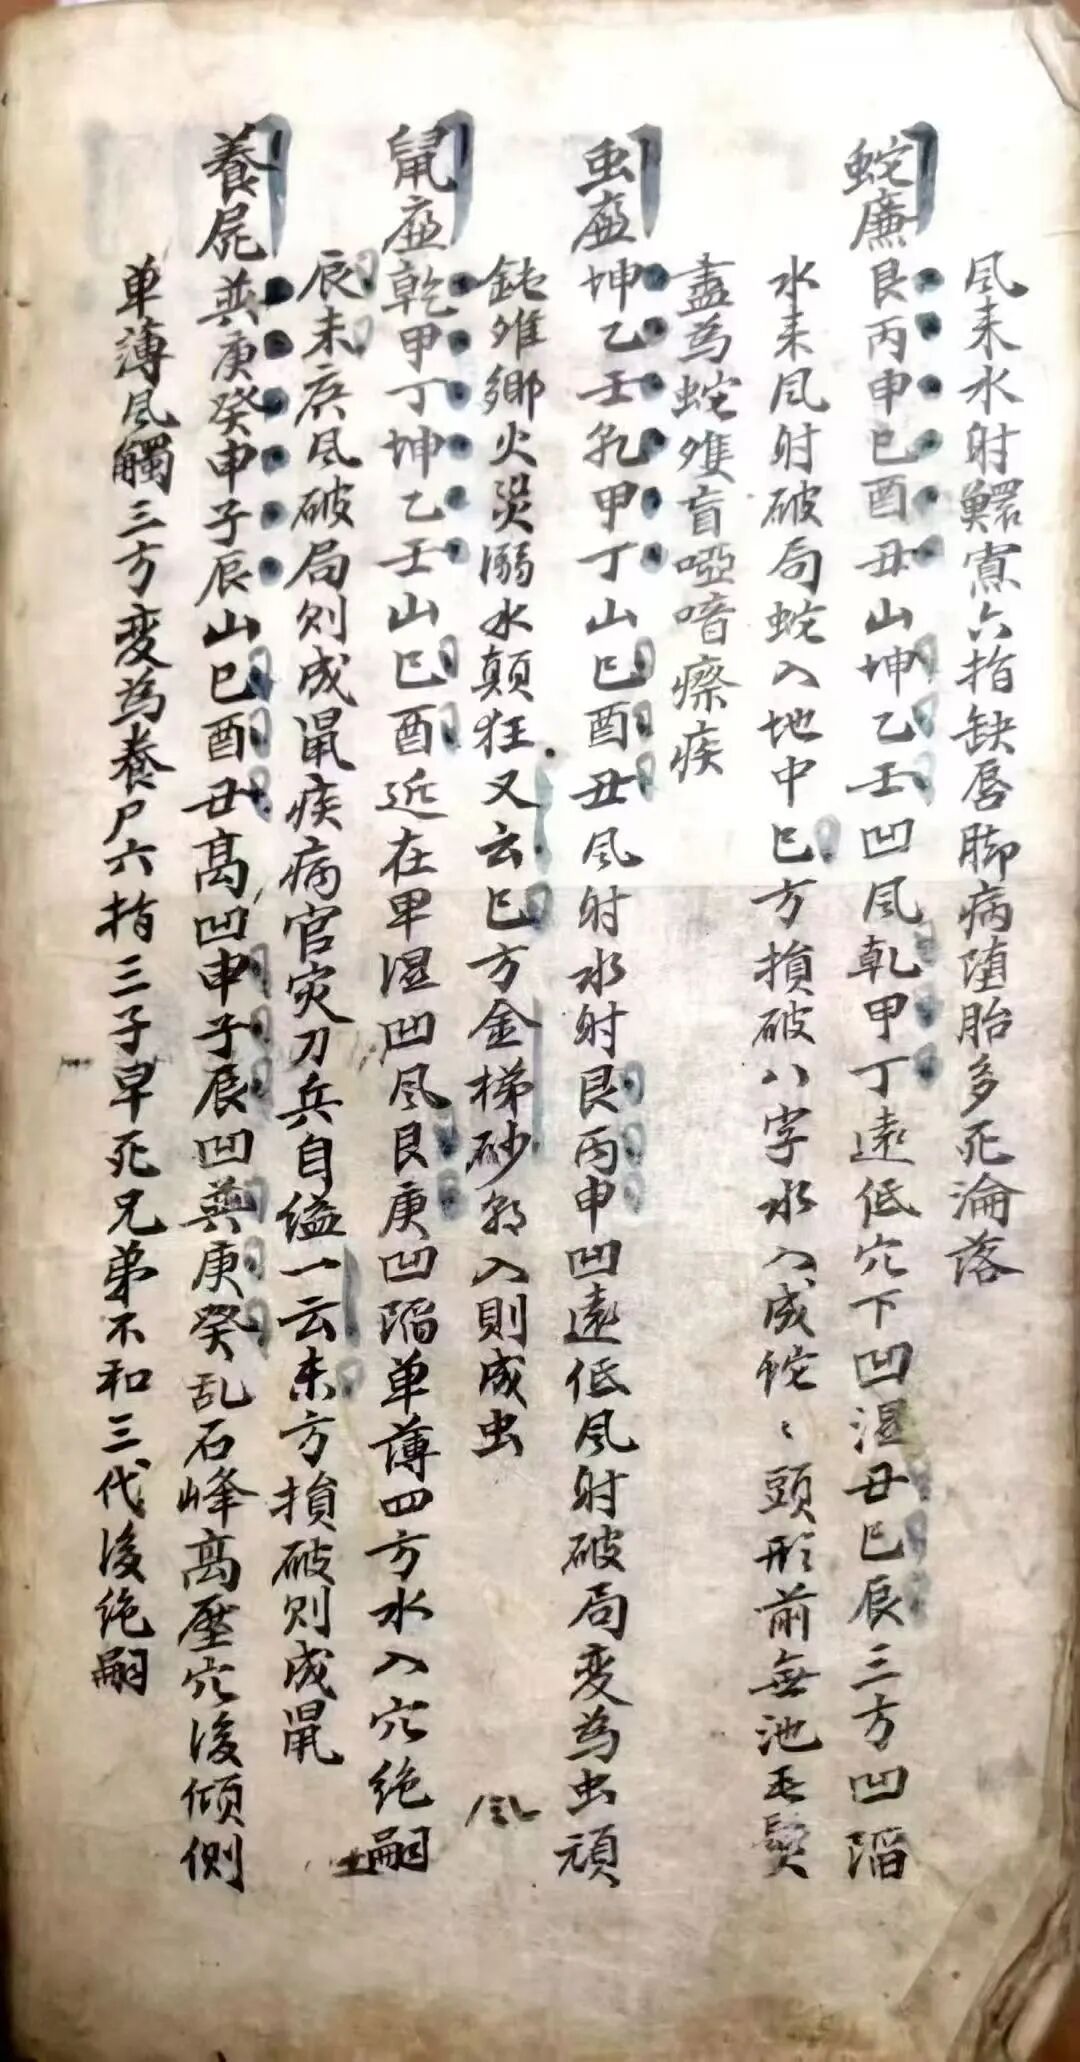 風来水射鰥寡六指缺唇脚病堕胎多死淪落
蛇廉艮丙申巳酉丑山坤乙壬凹風乾甲丁遠低穴下凹湿丑巳辰三方凹陷
水来風射破局蛇入地中巳方損破八字水入成蛇〻頭形前無池毛髮
盡為蛇雙盲啞喑瘵疾
虫廉坤乙壬乳甲丁山巳酉丑風射水射艮丙申凹遠低風射破局变為虫頑
鈍離鄉火災溺水顛狂又云巳方金梯砂入則成虫
鼠廉乾甲丁坤乙壬山巳酉近在甲湿凹風艮庚凹陷单薄四方水入穴绝嗣
辰未戌風破局则成鼠疾病官災刀兵自缢一云未方損破则成鼠
養屍巽庚癸申子辰山巳酉丑高凹申子辰凹巽庚癸乱石峰高壓穴後倾侧
单薄風觸三方变為養尸六指三子早死兄弟不和三代後绝嗣
風